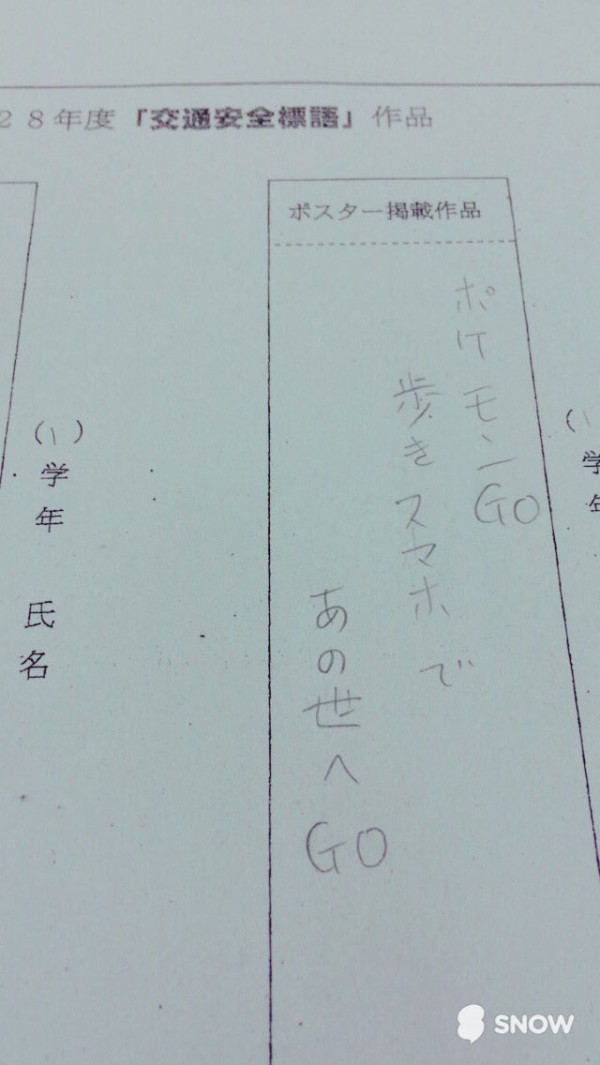 28年度「交通安全標語」作品
ポスター掲載作品
ポケモンGO
歩きスマホで
あの世へGO
(1)学年 氏名
SNOW